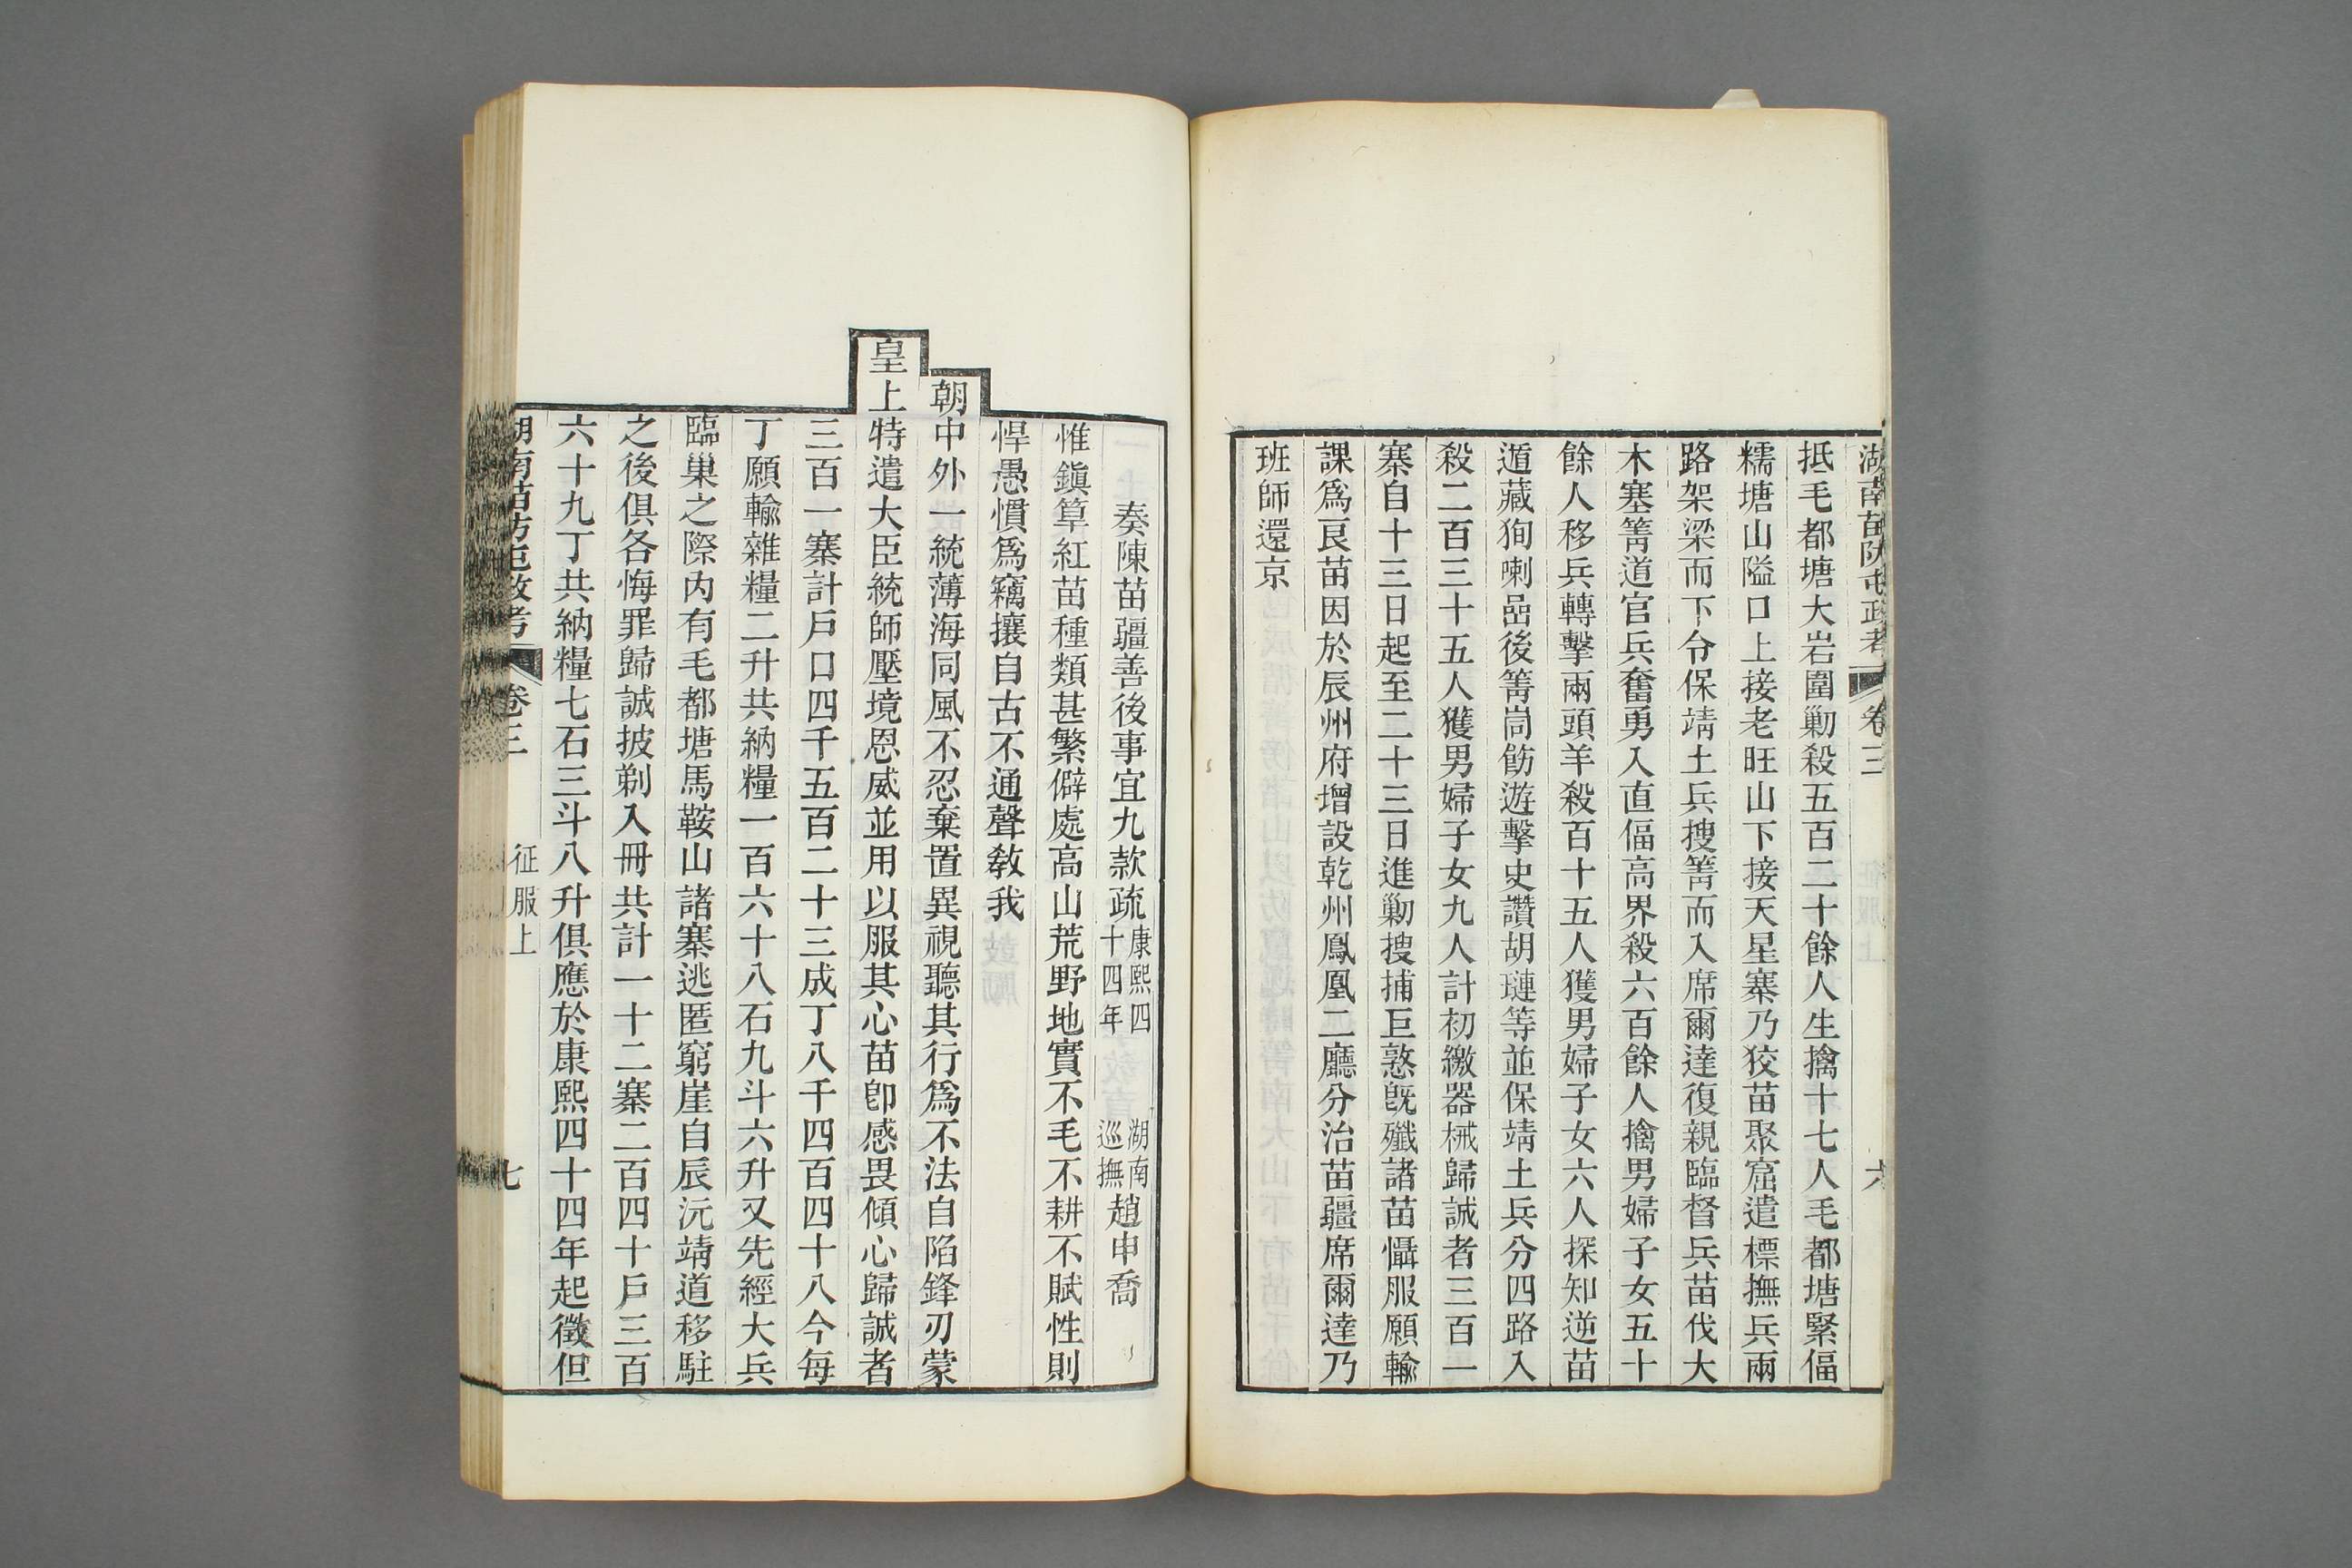 湖南苗防屯政考 卷三 六
抵毛都塘大岩圍勦殺五百二十餘人生擒十七人毛都塘緊偪
糯塘山隘口上接老旺山下接天星寨乃狡苗聚窟遣標撫兵兩
路架梁而下令保靖土兵搜箐而入席爾達復親臨督兵苗伐大
木塞箐道官兵奮勇入直偪高界殺六百餘人擒男婦子女五十
餘人移兵轉擊兩頭羊殺百十五人獲男婦子女六人探知逆苗
遁藏狥喇嵒後箐峝飭遊擊史讚胡璉等並保靖土兵分四路入
殺二百三十五人獲男婦子女九人計初繳器械歸誠者三百一
寨自十三日起至二十三日進勦搜捕巨憝旣殲諸苗懾服願輸
課爲良苗因於辰州府增設乾州鳳凰二廳分治苗疆席爾達乃
班師還京
奏陳苗疆善後事宜九款疏 康熙四十四年 湖南巡撫趙申喬
惟鎭筸紅苗種類甚繁僻處高山荒野地實不毛不耕不賦性則
悍愚慣爲竊攘自古不通聲教我
朝中外一統薄海同風不忍棄置異視聽其行爲不法自陷鋒刃蒙
皇上特遣大臣統師壓境恩威並用以服其心苗卽感畏傾心歸誠者
三百一寨計戶口四千五百二十三成丁八千四百四十八今每
丁願輸雜糧二升共納糧一百六十八石九斗六升又先經大兵
臨巢之際內有毛都塘馬鞍山諸寨逃匿窮崖自辰沅靖道移駐
之後俱各悔罪歸誠披剃入冊共計一十二寨二百四十戶三百
六十九丁共納糧七石三斗八升俱應於康熙四十四年起徵但
湖南苗防屯政考 卷三 征服上 七